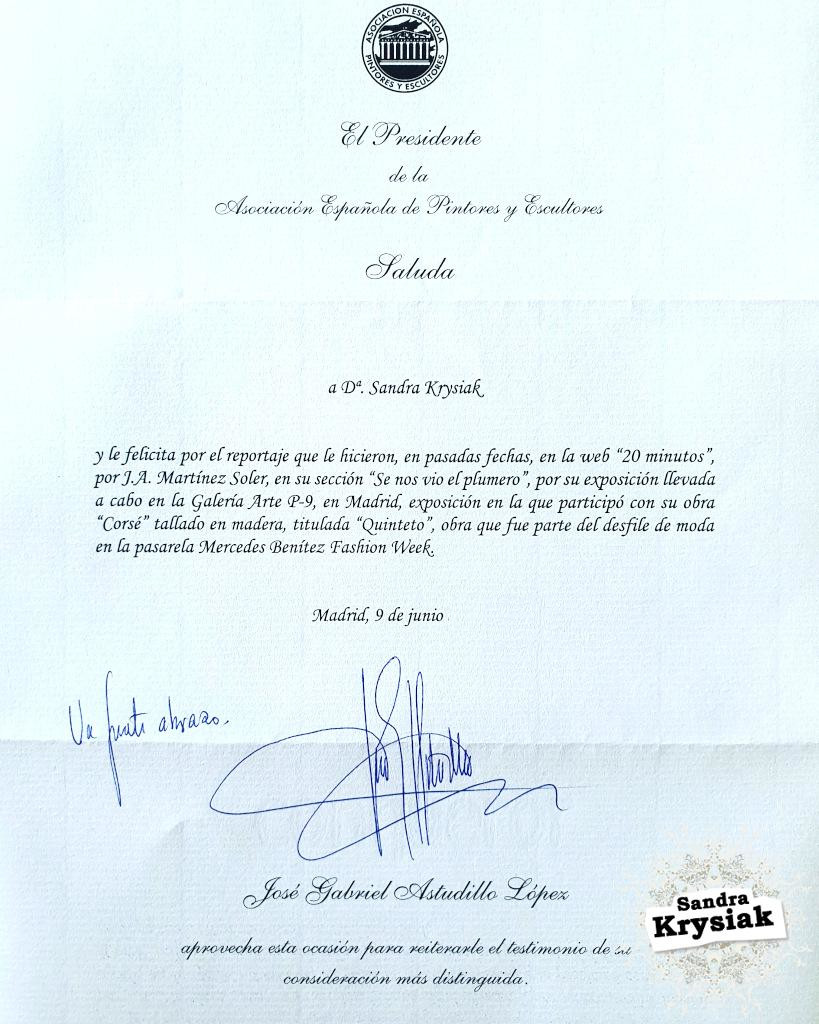 ASOCIACION ESPAÑOLA
PINTORES Y ESCULTORES
El Presidente
de la
Asociación Española de Pintores y Escultores
Saluda
a Dª. Sandra Krysiak
y le felicita por el reportaje que le hicieron, en pasadas fechas, en la web “20 minutos”,
por J.A. Martínez Soler, en su sección “Se nos vio el plumero”, por su exposición llevada
a cabo en la Galería Arte P-9, en Madrid, exposición en la que participó con su obra
“Corsé” tallado en madera, titulada “Quinteto”, obra que fue parte del desfile de moda
en la pasarela Mercedes Benítez Fashion Week.
Madrid, 9 de junio
Un fuerte abrazo.
José Gabriel Astudillo López
Sandra
Krysiak
aprovecha esta ocasión para reiterarle el testimonio de su
consideración más distinguida.